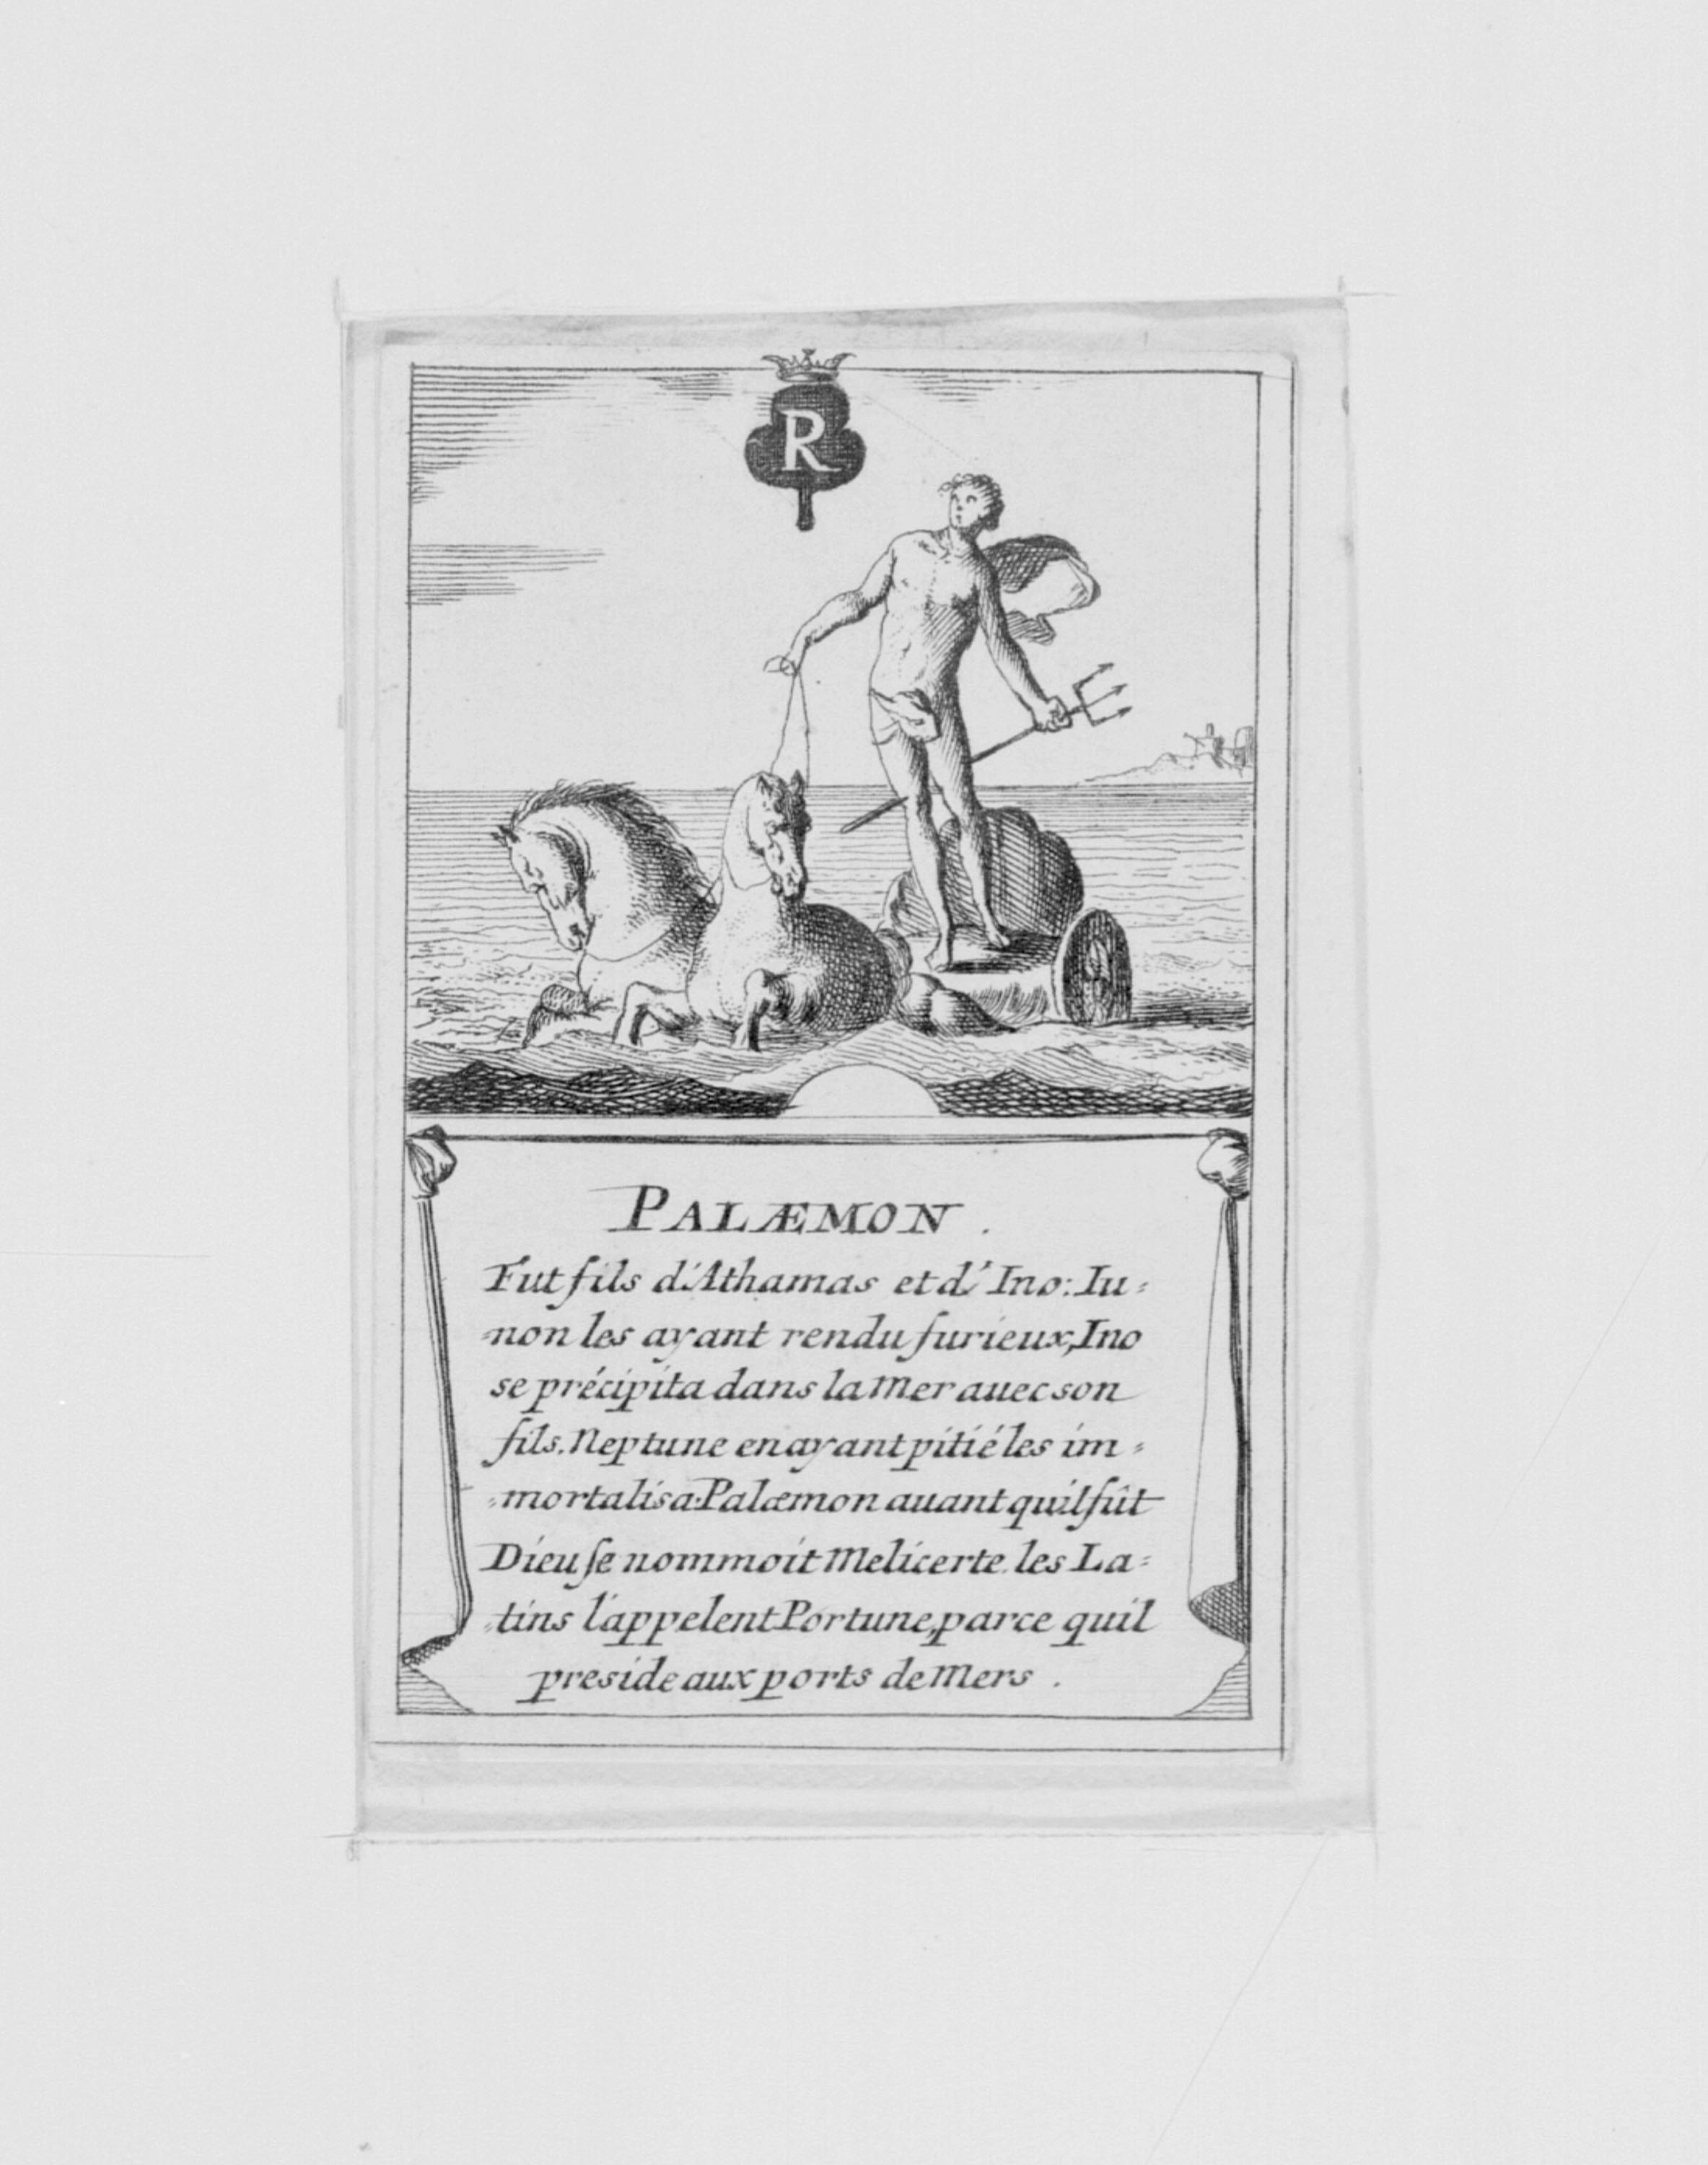 R
PALÆMON.
Fut fils d'Athamas et d'Ino: Iu=
=non les ayant rendu furieux, Ino
se précipita dans la Mer auec son
fils. Neptune en ayant pitié les im=
=mortalisa. Palæmon auant quil fût
Dieu se nommoit Melicerte. les La=
=tins l'appelent Portune, parce quil
preside aux ports de Mers.